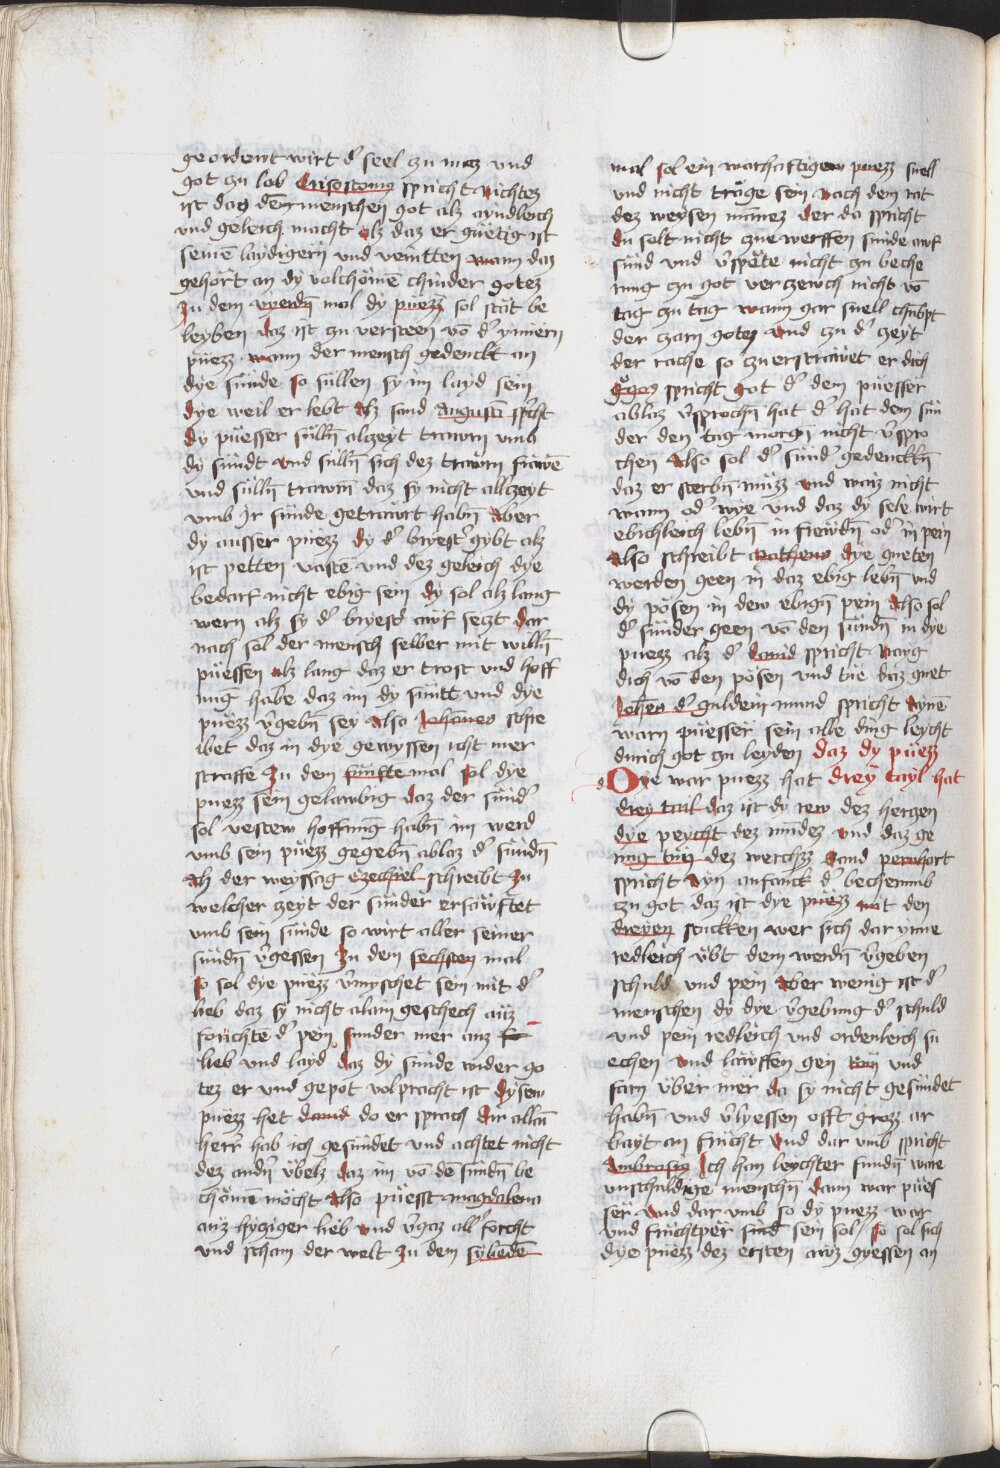 geordent wirt d' seel zu nucz und
got zu lob Crisostomus spricht nichtez
ist daz den menschen got alz ayndleich
und geleich macht alz daz er guetig ist
seinē laydigern und veintten wann daz
gehört an dy volchömē chinder gotez
Zu dem vierdn̄ mal dy puezz sol stät be
leyben daz ist zu versteen vō d' ynnern
puezz wann der mensch gedenckt an
dye sünde so süllen sy im layd sein
dye weil er lebt Alz sand Augusti sp̄cht
dy püesser sülln̄ alczeyt trawrn umb
dy sündt und sülln̄ sich dez trawrn frawē
und sülln̄ trawrn̄ daz sy nicht allczeyt
umb Jr sünde getrawrt habn̄ Aber
dy ausser puezz dy d' bryest' gybt alz
ist petten vastē und dez geleich dye
bedarf nicht ebig sein dy sol alz lang
wern alz sy d' bryest' awf seczt dar
nach sol der mensch selber mit willn̄
püessen alz lang daz er trost und hoff
nūg habe daz im dy sündt und dye
puezz v'gebn̄ sey Also Johannes schre
ibet daz in dye gewyssen icht mer
straffe Zu dem funfte mal sol dye
puezz sein gelawbig daz der sünd'
sol vestew hoffnūg habn̄ im werd
umb sein püezz gegebn̄ ablaz d' sündn̄
Alz der weyssag Ezechiel schreibt Zu
welcher zeyt der sünder ersäwftet
umb sein sünde so wirt aller seiner
sündn̄ v'gessen Zu dem sechsten mal
so sol dye püezz v'myschet sein mit d'
lieb daz sy nicht alain geschech auz
forichte d' pein sunder mer auz
lieb und layd daz dy sünde wider go
tez er und gepot volpracht ist dysew
puezz het dauid do er sprach dir allain
herr hab ich gesündet und achtet nicht
dez andn̄ übelz daz im vō dē sündn̄ be
chömē möcht Also püesst magdalena
auz hycziger lieb und v'gaz all' forcht
und scham der welt Zu dem sybendē
mal sol ein warhaftigew puezz snell
und nicht träge sein nach dem rat
dez weysen mānez der da spricht
du solt nicht zue werffen sünde awf
sünd und v'späte nicht zu beche
rung zu got verczewch nicht vō
tag zu tag wann gar snell chūpt
der zarn gotez und zu d' zeyt
der rache so zuerströwet er dich
Ggos spricht got d' dem püesser
ablaz v'sprochn̄ hat d' hat dem sün
der den tag morgn̄ nicht v'spro
chen Also sol d' sünd' gedenckn̄
daz er sterbn̄ müzz und waiz nicht
wann od' wye und daz dy sele wirt
ebichleich lebn̄ in frewdn̄ od' in pein
Also schreibt Matheus dye gueten
werden geen in daz ebig lebn̄ und
dy pösen in dew ebign̄ pein Also sol
d' sünder geen vō den sündn̄ in dye
puezz alz d' dauid spricht Nayg
dich vō den pösen und tüe daz guet
Johes d' guldein mund spricht aynē
warn püesser sein alle ding leycht
durich got zu leyden daz dy püezz
Dye war puezz hat drey tayl hat
drey tail daz ist dy rew dez herczen
dye peycht dez mūndez und daz ge
nug tūn dez werchzz Sand pernhart
spricht Ayn anfanck d' becherunb
zu got daz ist dye puezz mit den
dreyen stucken wer sich dar ynne
redleich übt dem werdn̄ v'geben
schuld und pein Aber wenig ist d'
menschen dy dye v'gebung d' schuld
und pein redleich und ordenleich su
echen und läwffen gen Rom und
farn über mer da sy nicht gesündet
habn̄ und v'lyessen offt grozz ar
bayt an frücht Und dar umb spricht
Ambrosius Ich han leychter fundn̄ ware
unschuldige menschn̄ dann war pües
ser Und dar umb so dy puezz war
und früchtper sind sein sol so sol sich
dye puezz dez ersten awz gyessen an